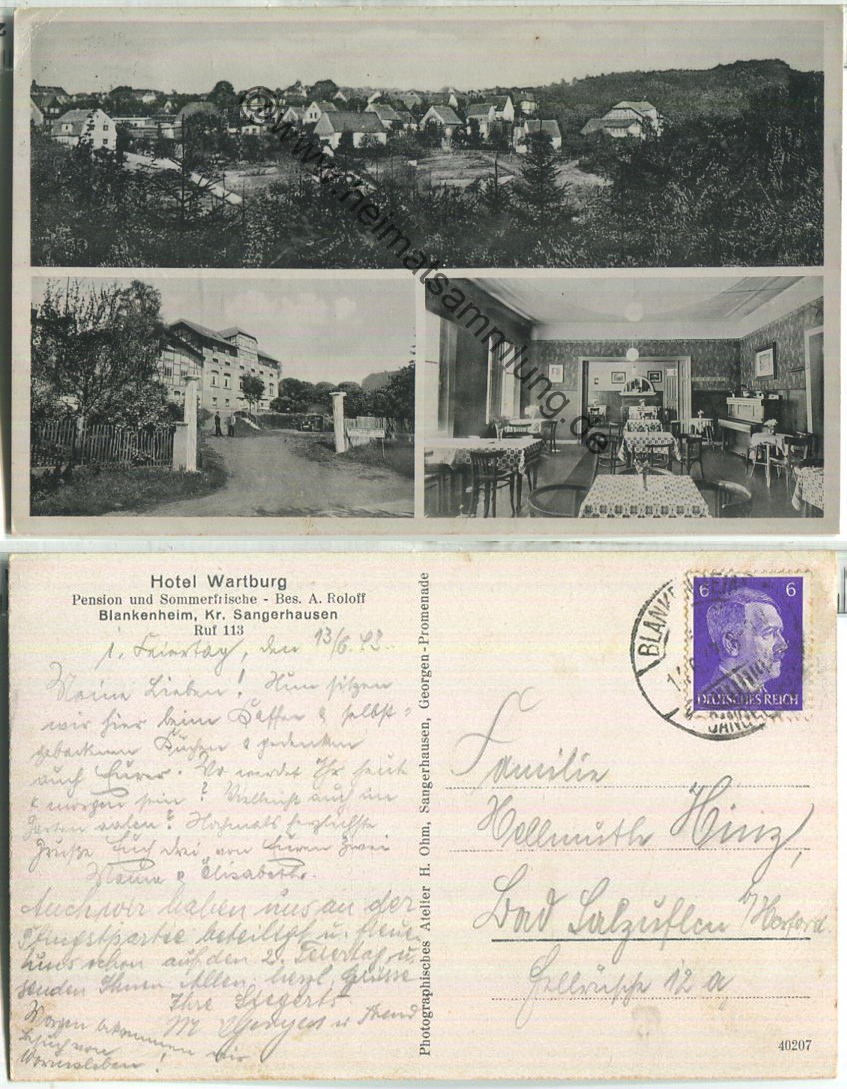 © www.heimatsammlung.de
Hotel Wartburg
Pension und Sommerfrische - Bes. A. Roloff
Blankenheim, Kr. Sangerhausen
Ruf 113
1. Feiertag, den 13/6. 43.
Meine Lieben! Nun sitzen
wir hier beim Kaffee & selbst=
gebackenen Kuchen & gedenken
auch Eurer. Wo werdet Ihr heut
& morgen sein? Vielleicht auch im
Garten Herzlichste
Grüße Euch drei von Euren zwei
& Elisabeth.
Auch wir haben uns an der
Pfingstpartie beteiligt u. freuen
uns schon auf den 2. Feiertag u.
senden Ihnen Allen herzl. Grüsse
Ihre Siegerts
Morgen bekommen wir
Besuch von
Wormsleben!
Photographisches Atelier H. Ohm, Sangerhausen, Georgen-Promenade
BLANKENHEIM
SANGERH
6 6
DEUTSCHES REICH
Familie
Hellmuth Hinz,
Bad Salzuflen b/Herford.
12 a
40207